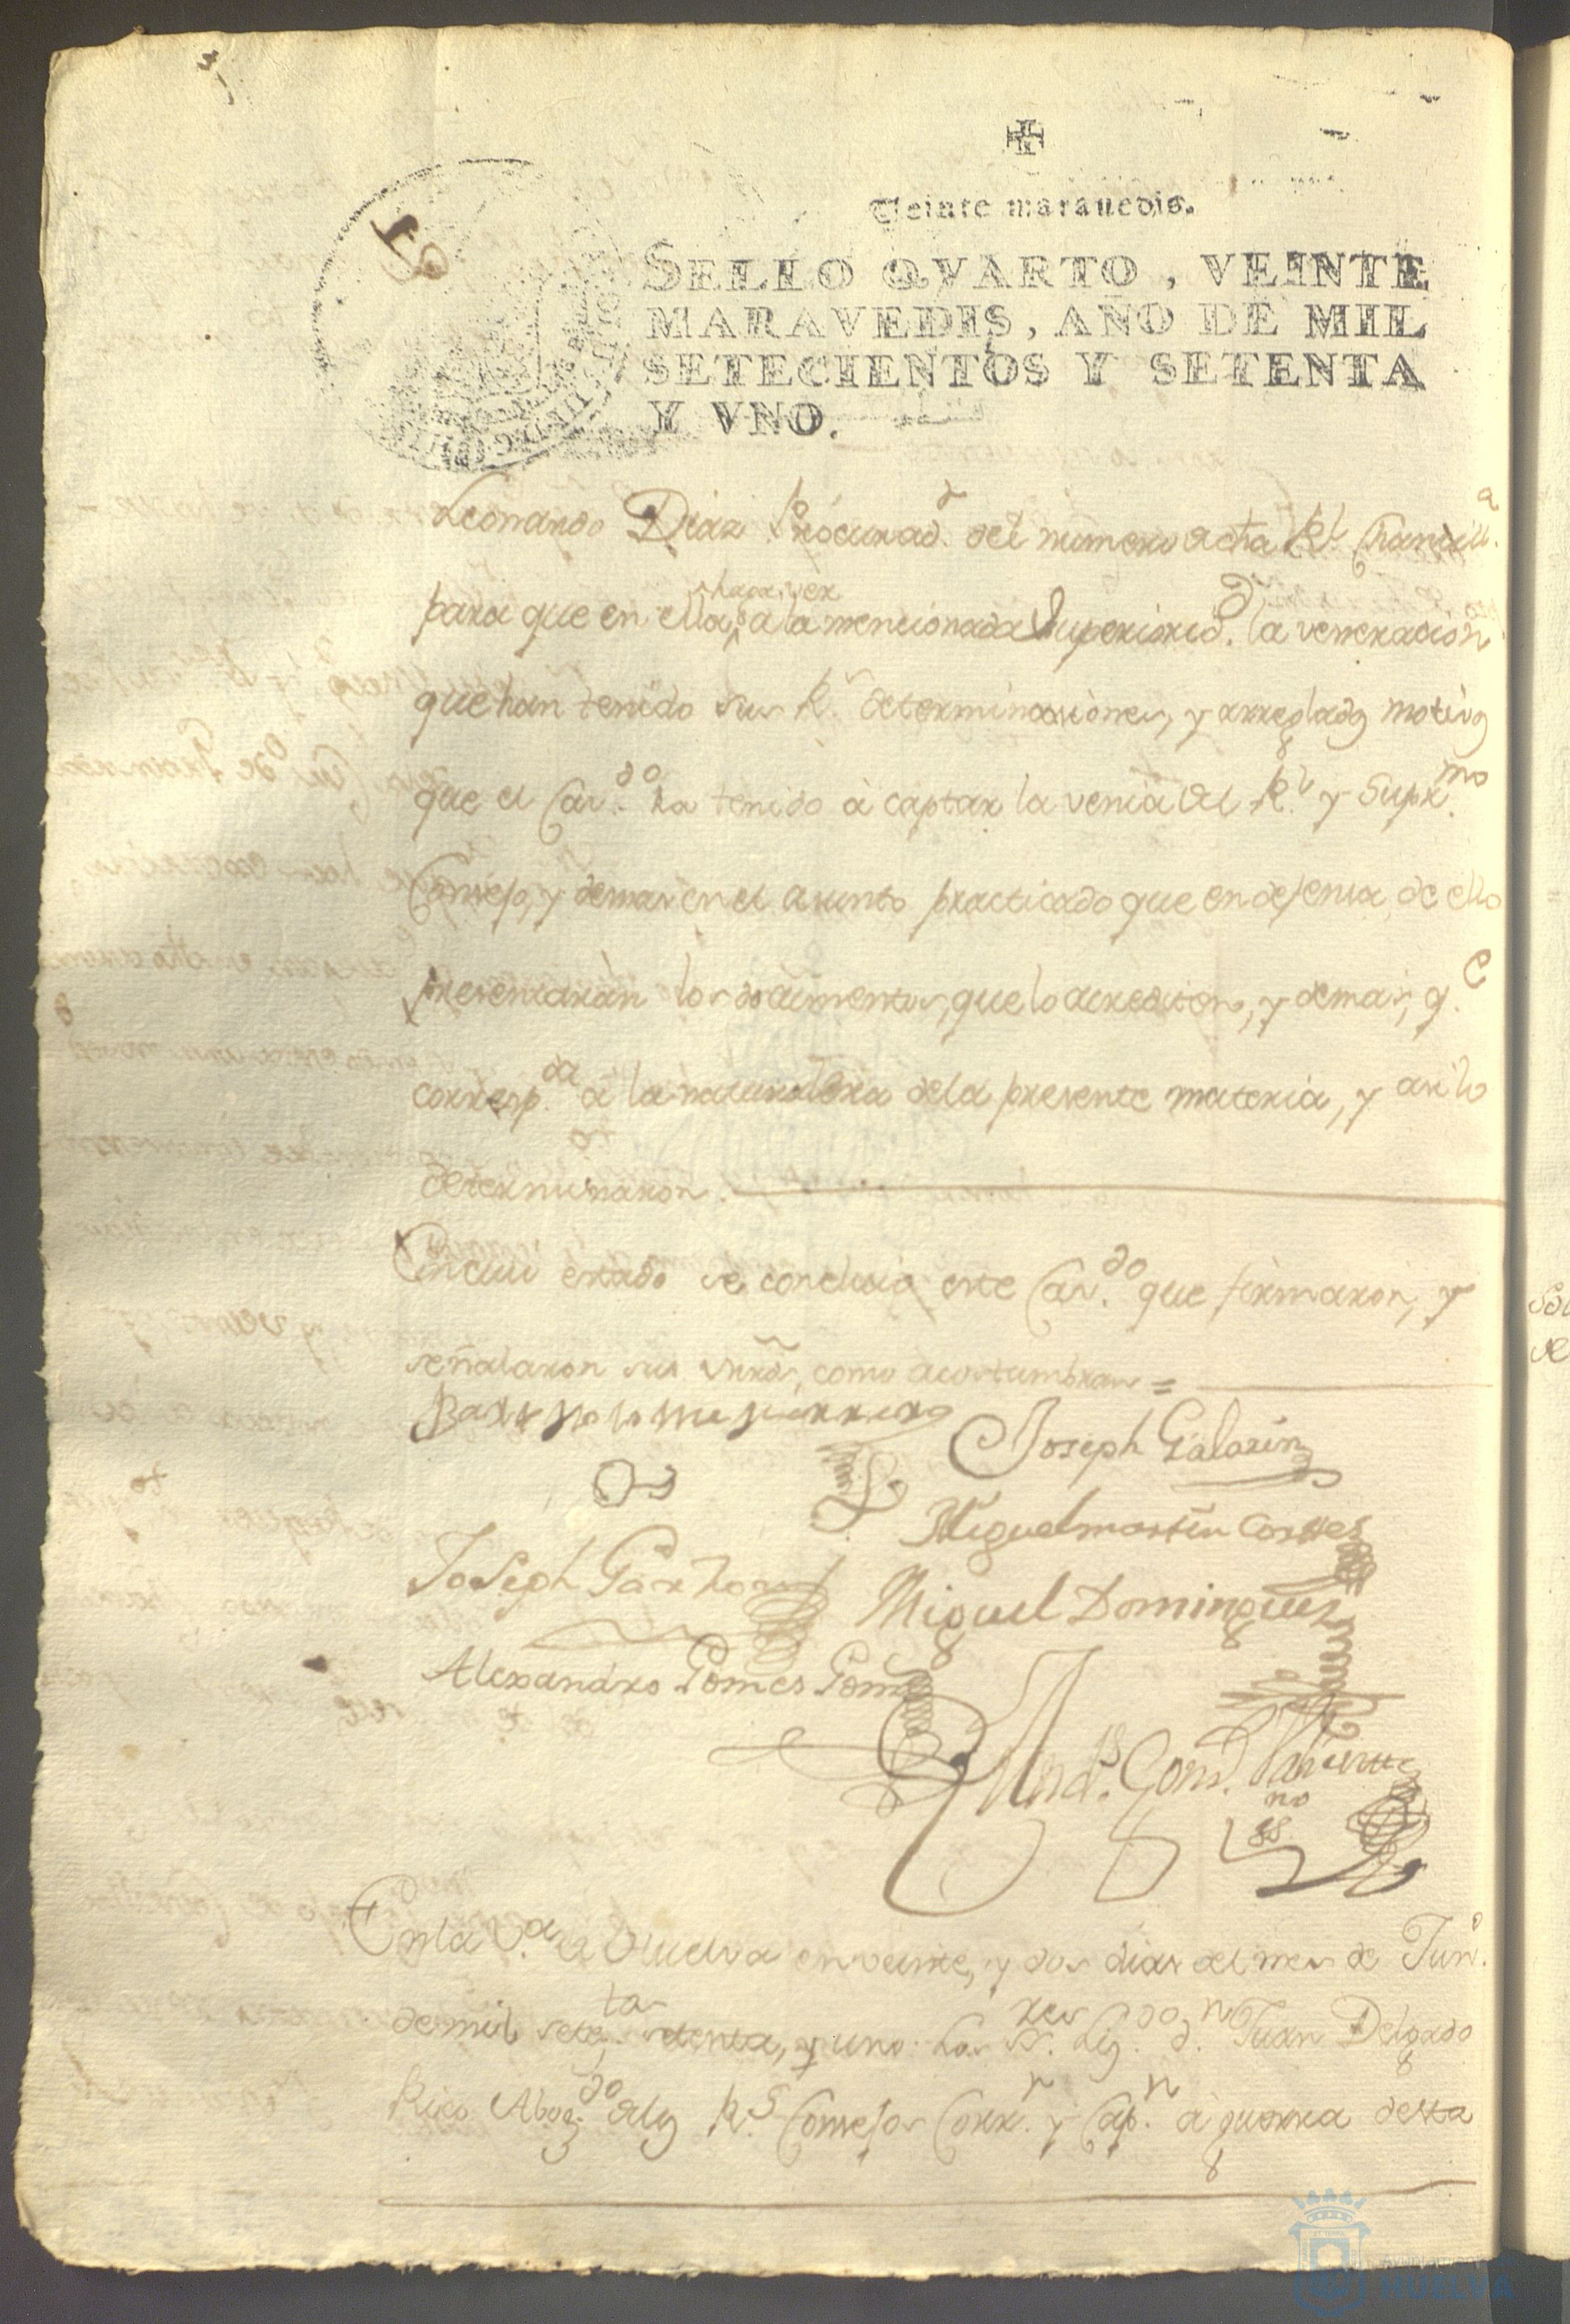 Veinte maravedis.
SELLO QVARTO, VEINTE
MARAVEDIS, AÑO DE MIL
SETECIENTOS Y SETENTA
Y VNO.
Leonardo Diaz Procurad.r del número de dha Rl. Chancill.a
para que en ella haga ver a la mencionada Superiorid.d la veneracion
que han tenido sus R.s determinaciones, y arreglados motivos
que el Cav.do ha tenido à captar la venia del R.l y Supr.mo
Consejo, y demas en el asunto practicado que en defensa de ello
presentaràn los documentos, que lo acrediten, y demas, q.e
corresp.da à la naturaleza dela presente materia, y asi lo
determinaron.
En cuio estado se concluió este Cav.do que firmaron, y
señalaron sus mrds, como acostumbran =
Joseph Galarin
Miguel martin Cortes
Joseph Garzon
Miguel Dominguez
Alexandro Gomes
And.s Gonz.
En la V.a de Huelva en veinte, y dos dias del mes de Jun.o
de mil setec.tos setenta, y uno: Los SS.res Liz.do d.n Juan Delgado
Rico Abog.do delos R.s Consejos Corr.r y Cap.n à guerra desta
HUELVA